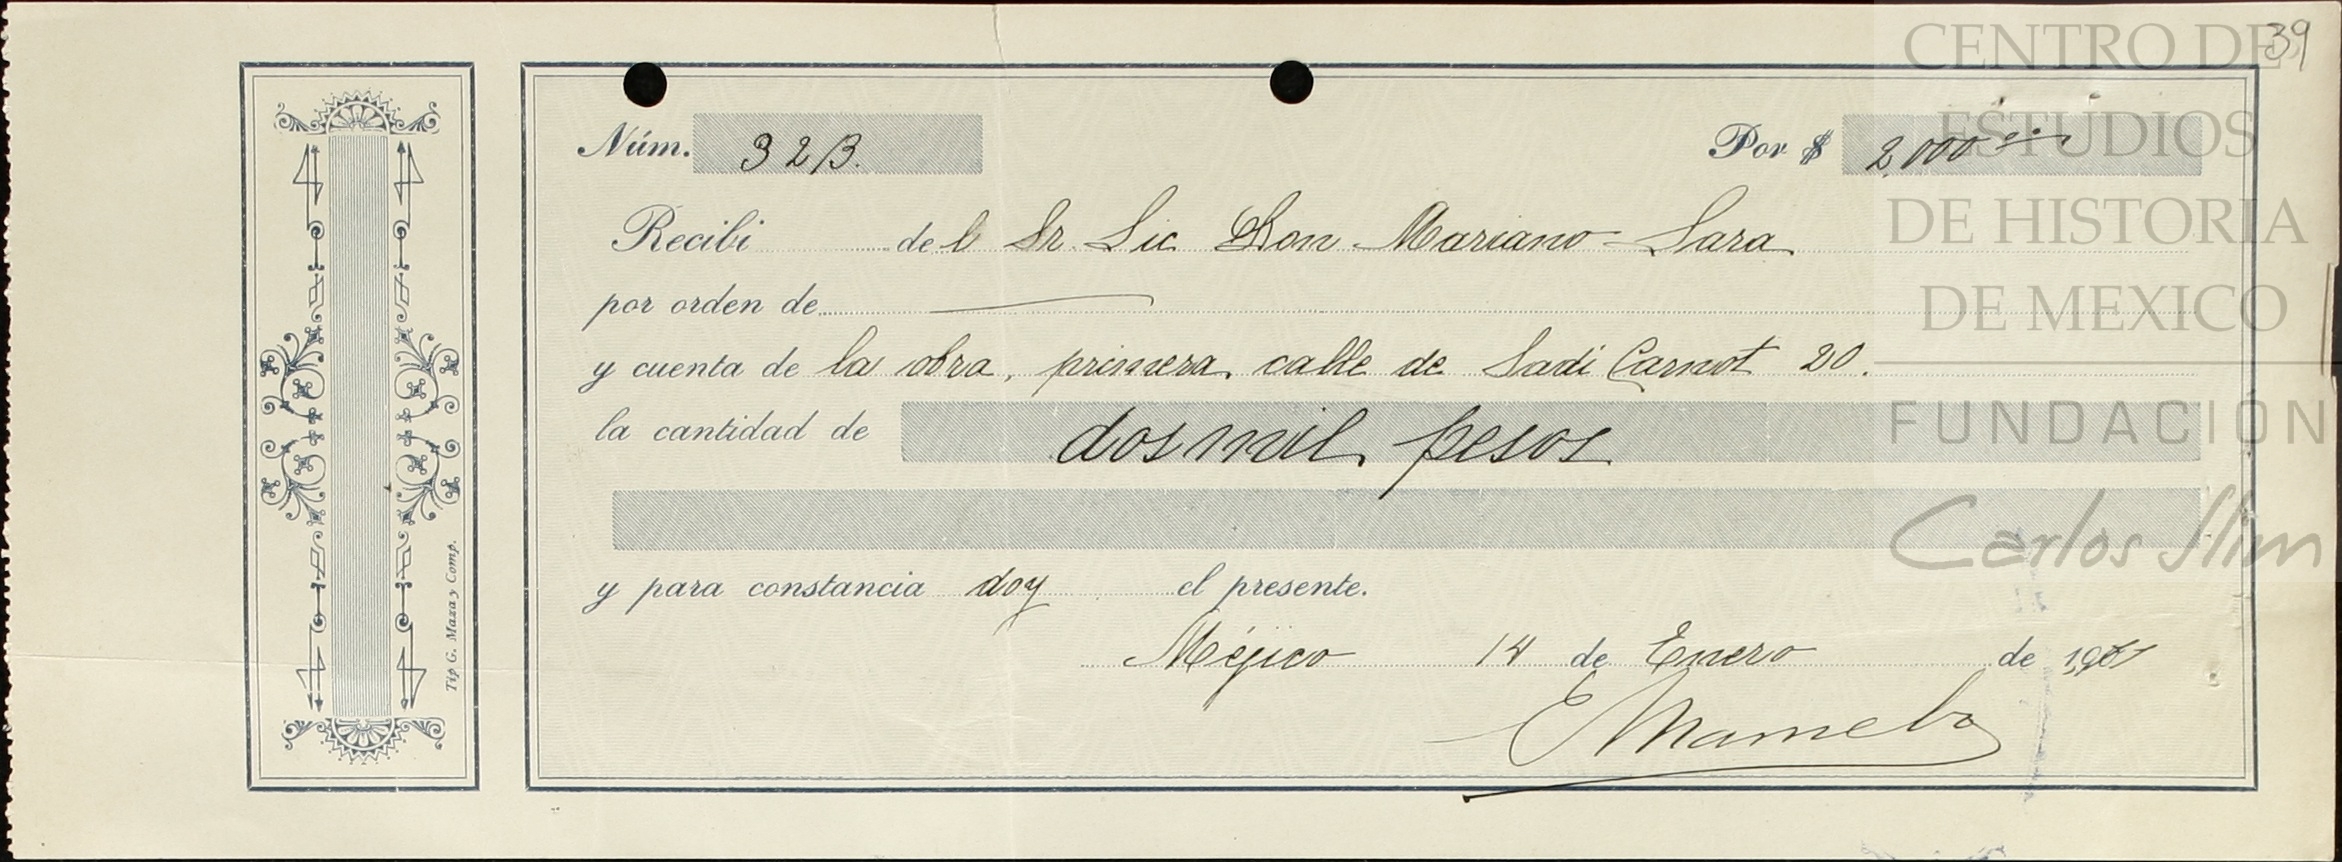 39
CENTRO DE
ESTUDIOS
DE HISTORIA
DE MEXICO
FUNDACIÓN
Carlos Slim
Núm. 32B. Por $ 2,000
Recibi del Sr. Lic Don Mariano Lara
por orden de
y cuenta de la obra, primera calle de Sadi Carnot 20.
la cantidad de dos mil pesos
y para constancia doy el presente.
Méjico 14 de Enero de
Tip G. Maza y Comp.